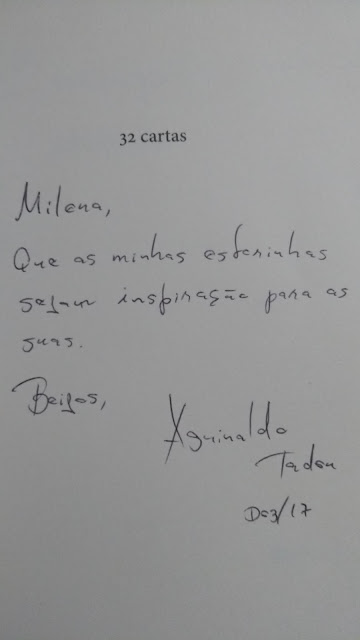 32 cartas
Milena,
Que as minhas esferinhas
sejam inspiração para as
suas.
Beijos,
Aguinaldo
Tadeu
Dez/17